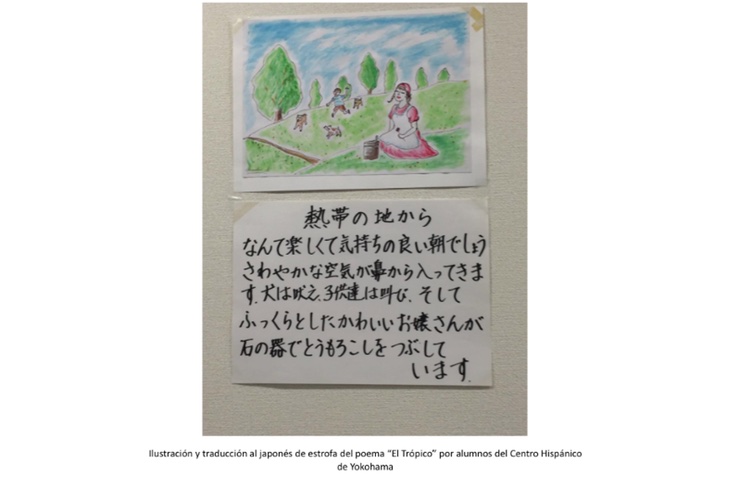 熱帯の地から
なんて楽しくて気持ちの良い朝でしょう
さわやかな空気が鼻から入ってきま
す。犬は吠え、子供達は叫び、そして
ふっくらとしたかわいいお嬢さんが
石の器でとうもろこしをつぶして
います。
Ilustración y traducción al japonés de estrofa del poema “El Trópico” por alumnos del Centro Hispánico
de Yokohama